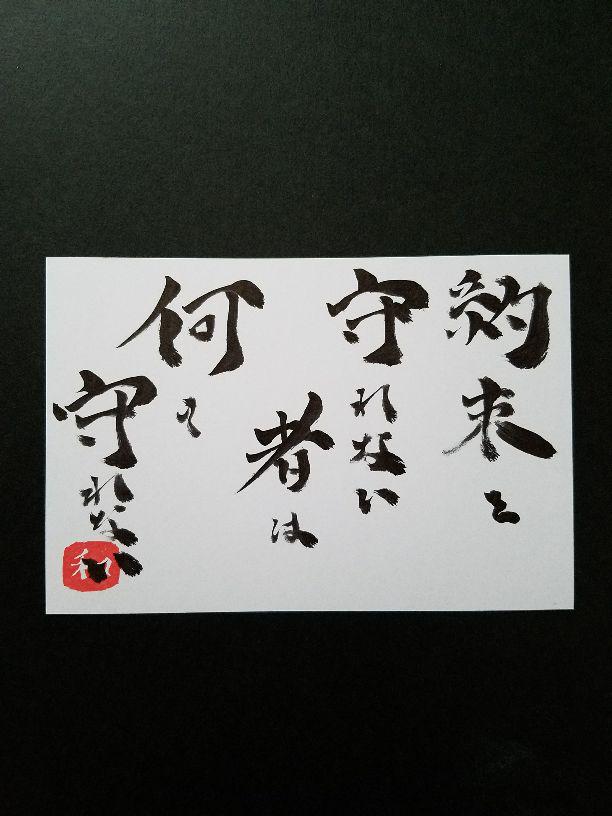 約束を
守れない
者は
何も
守れない
和